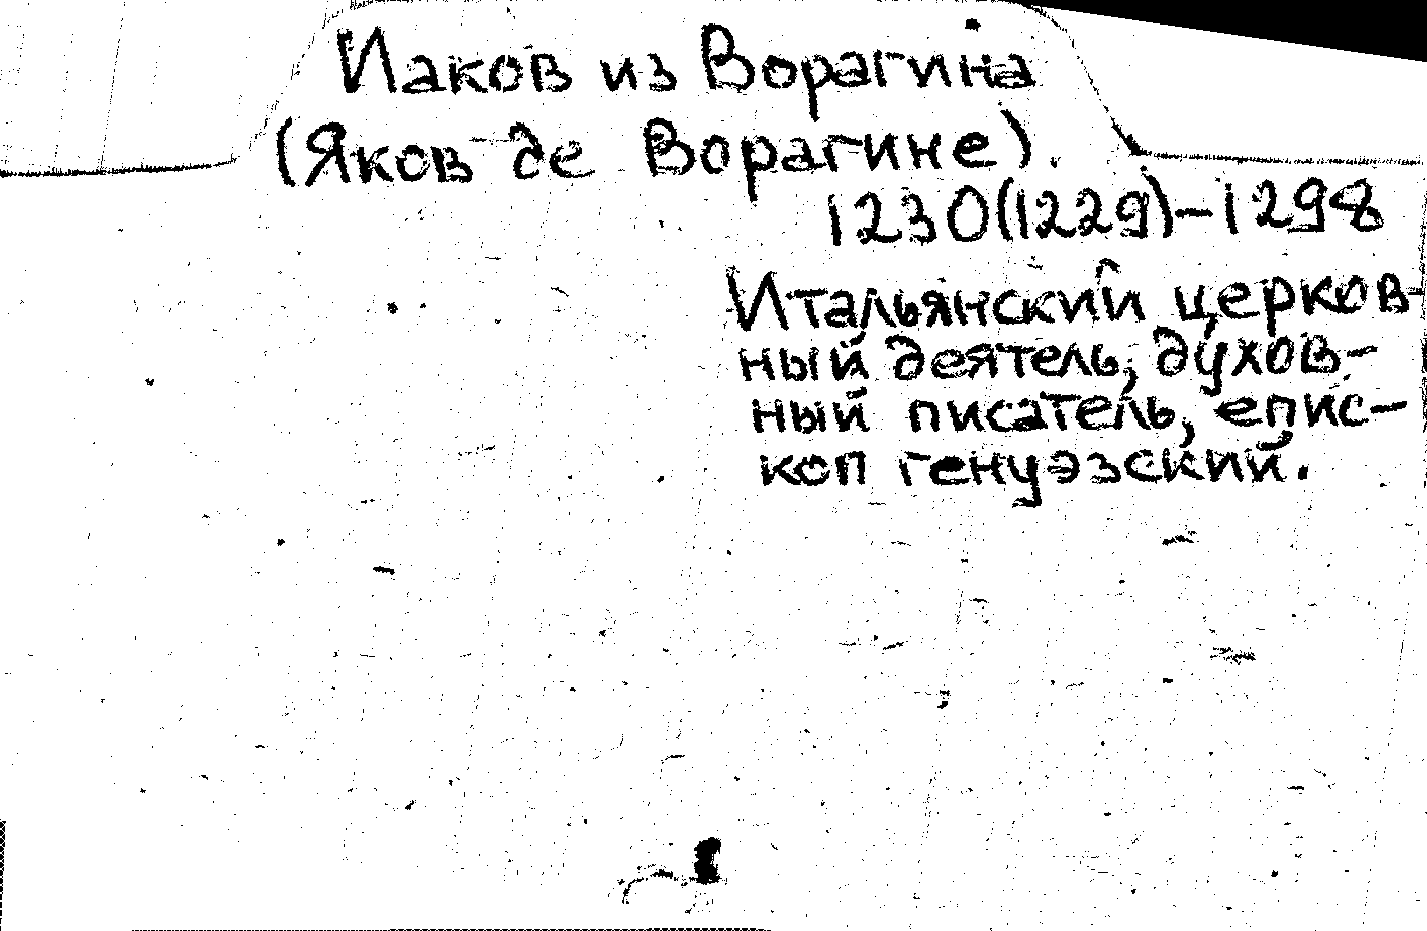 Иаков из Ворагина
(Яков де Ворагине).
1230(1229)-1298
Итальянский церков-
ный деятель, духов-
ный писатель, епис-
коп генуэзский.